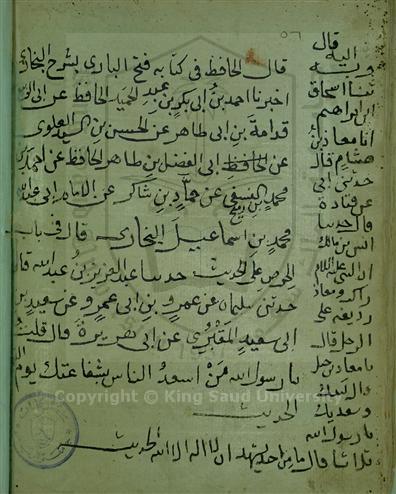 قال الحافظ فى كتابه فتح البارى بشرح البخارى
اخبرنا احمد بن ابى بكر بن عبد الحميد الحافظ عن ابى الربيع
قدامة بن ابى طاهر عن الحسين بن السيد العلوى
عن الحافظ ابى الفضل بن طاهر الحافظ عن احمد
محمد بن النسفى عن حماد بن شاكر عن الامام ابى عبد الله
محمد بن اسماعيل البخارى قال فى باب
الحرص على الحديث حدسا عبد العزيز بن عبد الله قال
حدثنى سليمان عن عمرو بن ابى عمرو عن سعيد بن
ابى سعيد المقبرى عن ابى هريرة قال قلت
يا رسول الله من اسعد الناس بشفاعتك يوم
الحديث
قال
اليه
وبه
ثنا اسحاق
ابن ابراهيم
انا معاذ بن
هشام قال
حدثنى ابى
عن قتادة
قال حدسا
انس بن مالك
ان النبى عليه السلام
راكم ومعاذ
رديفه على
الرحل قال
يا معاذ بن جبل
قال لبيك
وسعديك
يا رسول الله
ثلاثا قال ما من احد يشهد ان لا اله الا الله الحديث
٥٦
Copyright © King Saud University